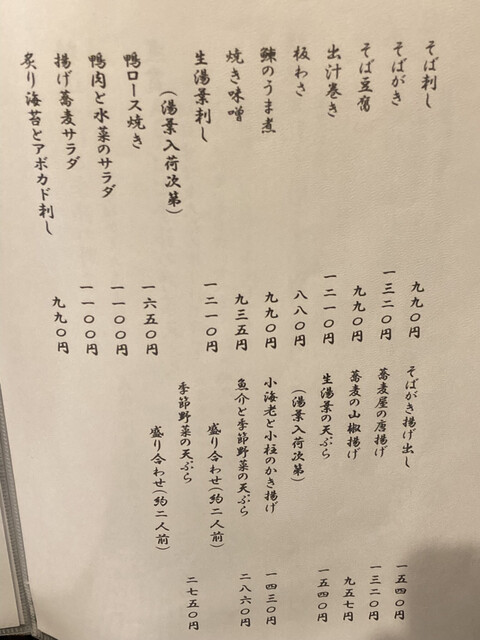 そば刺し 九九〇円
そばがき 一三二〇円
そば豆腐 九九〇円
出汁巻き 一二一〇円
板わさ 八八〇円
鰊のうま煮 九九〇円
焼き味噌 九三五円
生湯葉刺し 一二一〇円
(湯葉入荷次第)
鴨ロース焼き 一六五〇円
鴨肉と水菜のサラダ 一一〇〇円
揚げ蕎麦サラダ 一一〇〇円
炙り海苔とアボカド刺し 九九〇円
そばがき揚げ出し 一五四〇円
蕎麦屋の唐揚げ 一三二〇円
蕎麦の山椒揚げ 九五七円
生湯葉の天ぷら 一五四〇円
(湯葉入荷次第)
小海老と小柱のかき揚げ 一四三〇円
魚介と季節野菜の天ぷら 二八六〇円
盛り合わせ(約二人前)
季節野菜の天ぷら 二七五〇円
盛り合わせ(約二人前)